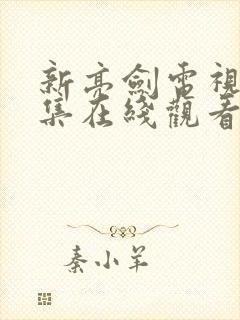 新亮劍電視
集在綫觀看
秦小羊